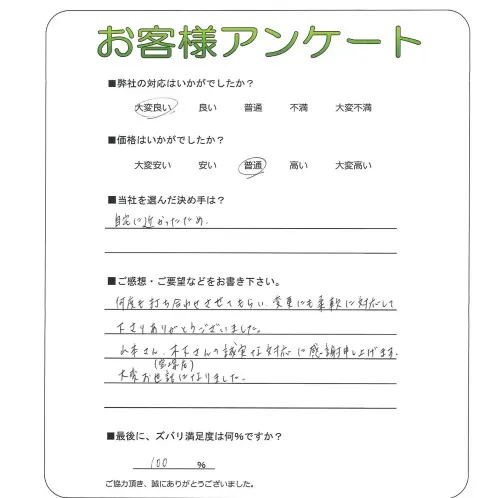 お客様アンケート
■弊社の対応はいかがでしたか？
大変良い 良い 普通 不満 大変不満
■価格はいかがでしたか？
大変安い 安い 普通 高い 大変高い
■当社を選んだ決め手は？
自宅に近かったため.
■ご感想・ご要望などをお書き下さい。
何度も打ち合わせさせてもらい、変更にも柔軟に対応して
下さりありがとうございました。
山本さん、木下さんの誠実な対応に感謝申し上げます.
大変お世話になりました.
■最後に、ズバリ満足度は何%ですか？
100 %
ご協力頂き、誠にありがとうございました。